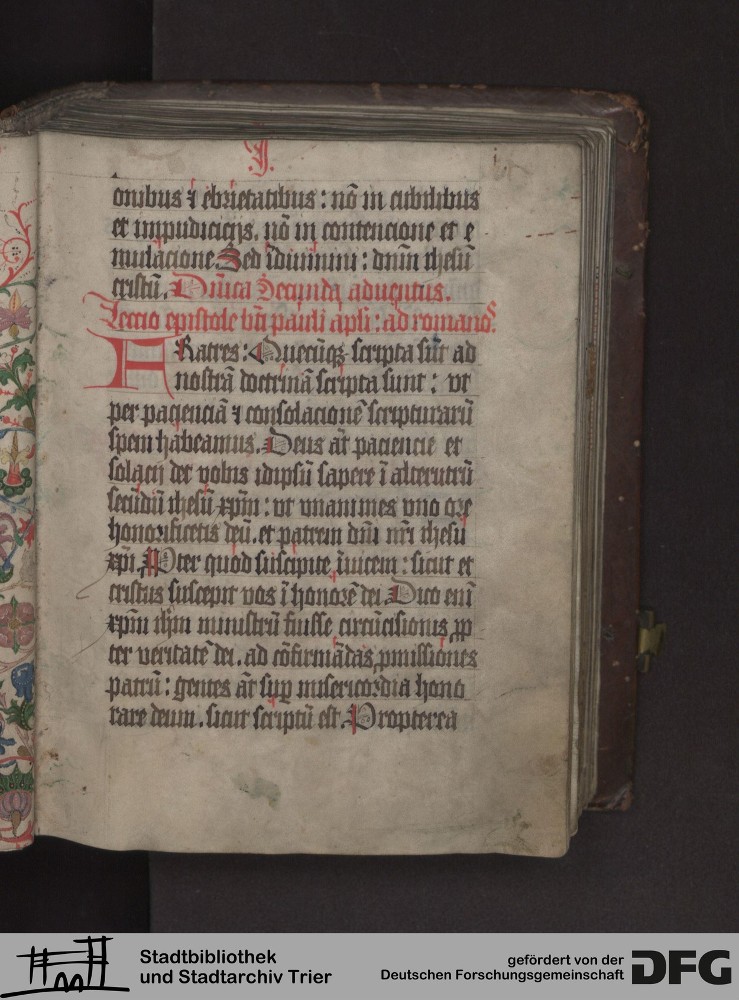 J.
onibus ⁊ ebrietatibus : nō in cubilibus
et impudicicijs. nō in contencione et e
mulacione. Sed īduimini : dnm̄ ihesū
cristū. Dn̄ica Secunda aduentus.
Leccio epistole bt̄i pauli apli : ad romanos.
FRatres : Quecūqꝫ scripta sūt ad
nostrā doctrinā scripta sunt : vt
per pacienciā ⁊ consolacionē scripturarū
spem habeamus. Deus aūt paciencie et
solacij det vobis idipsū sapere ī alterutrū
secūdū ihesū xp̄m : vt vnanimes vno ore
honorificetis deū. et patrem dn̄i nr̄i ihesu
xp̄i. Pter quod suscipite īuicem : sicut et
cristus suscepit vos ī honorē dei. Dico enī
xp̄m ih̄m ministrū fuisse circūcisionis ꝓp
ter veritatē dei. ad cōfirmādas ꝓmissiones
patrū : gentes aūt suꝑ misericordia hono
rare deum. sicut scriptū est. Propterea
Stadtbibliothek
und Stadtarchiv Trier
gefördert von der
Deutschen Forschungsgemeinschaft
DFG